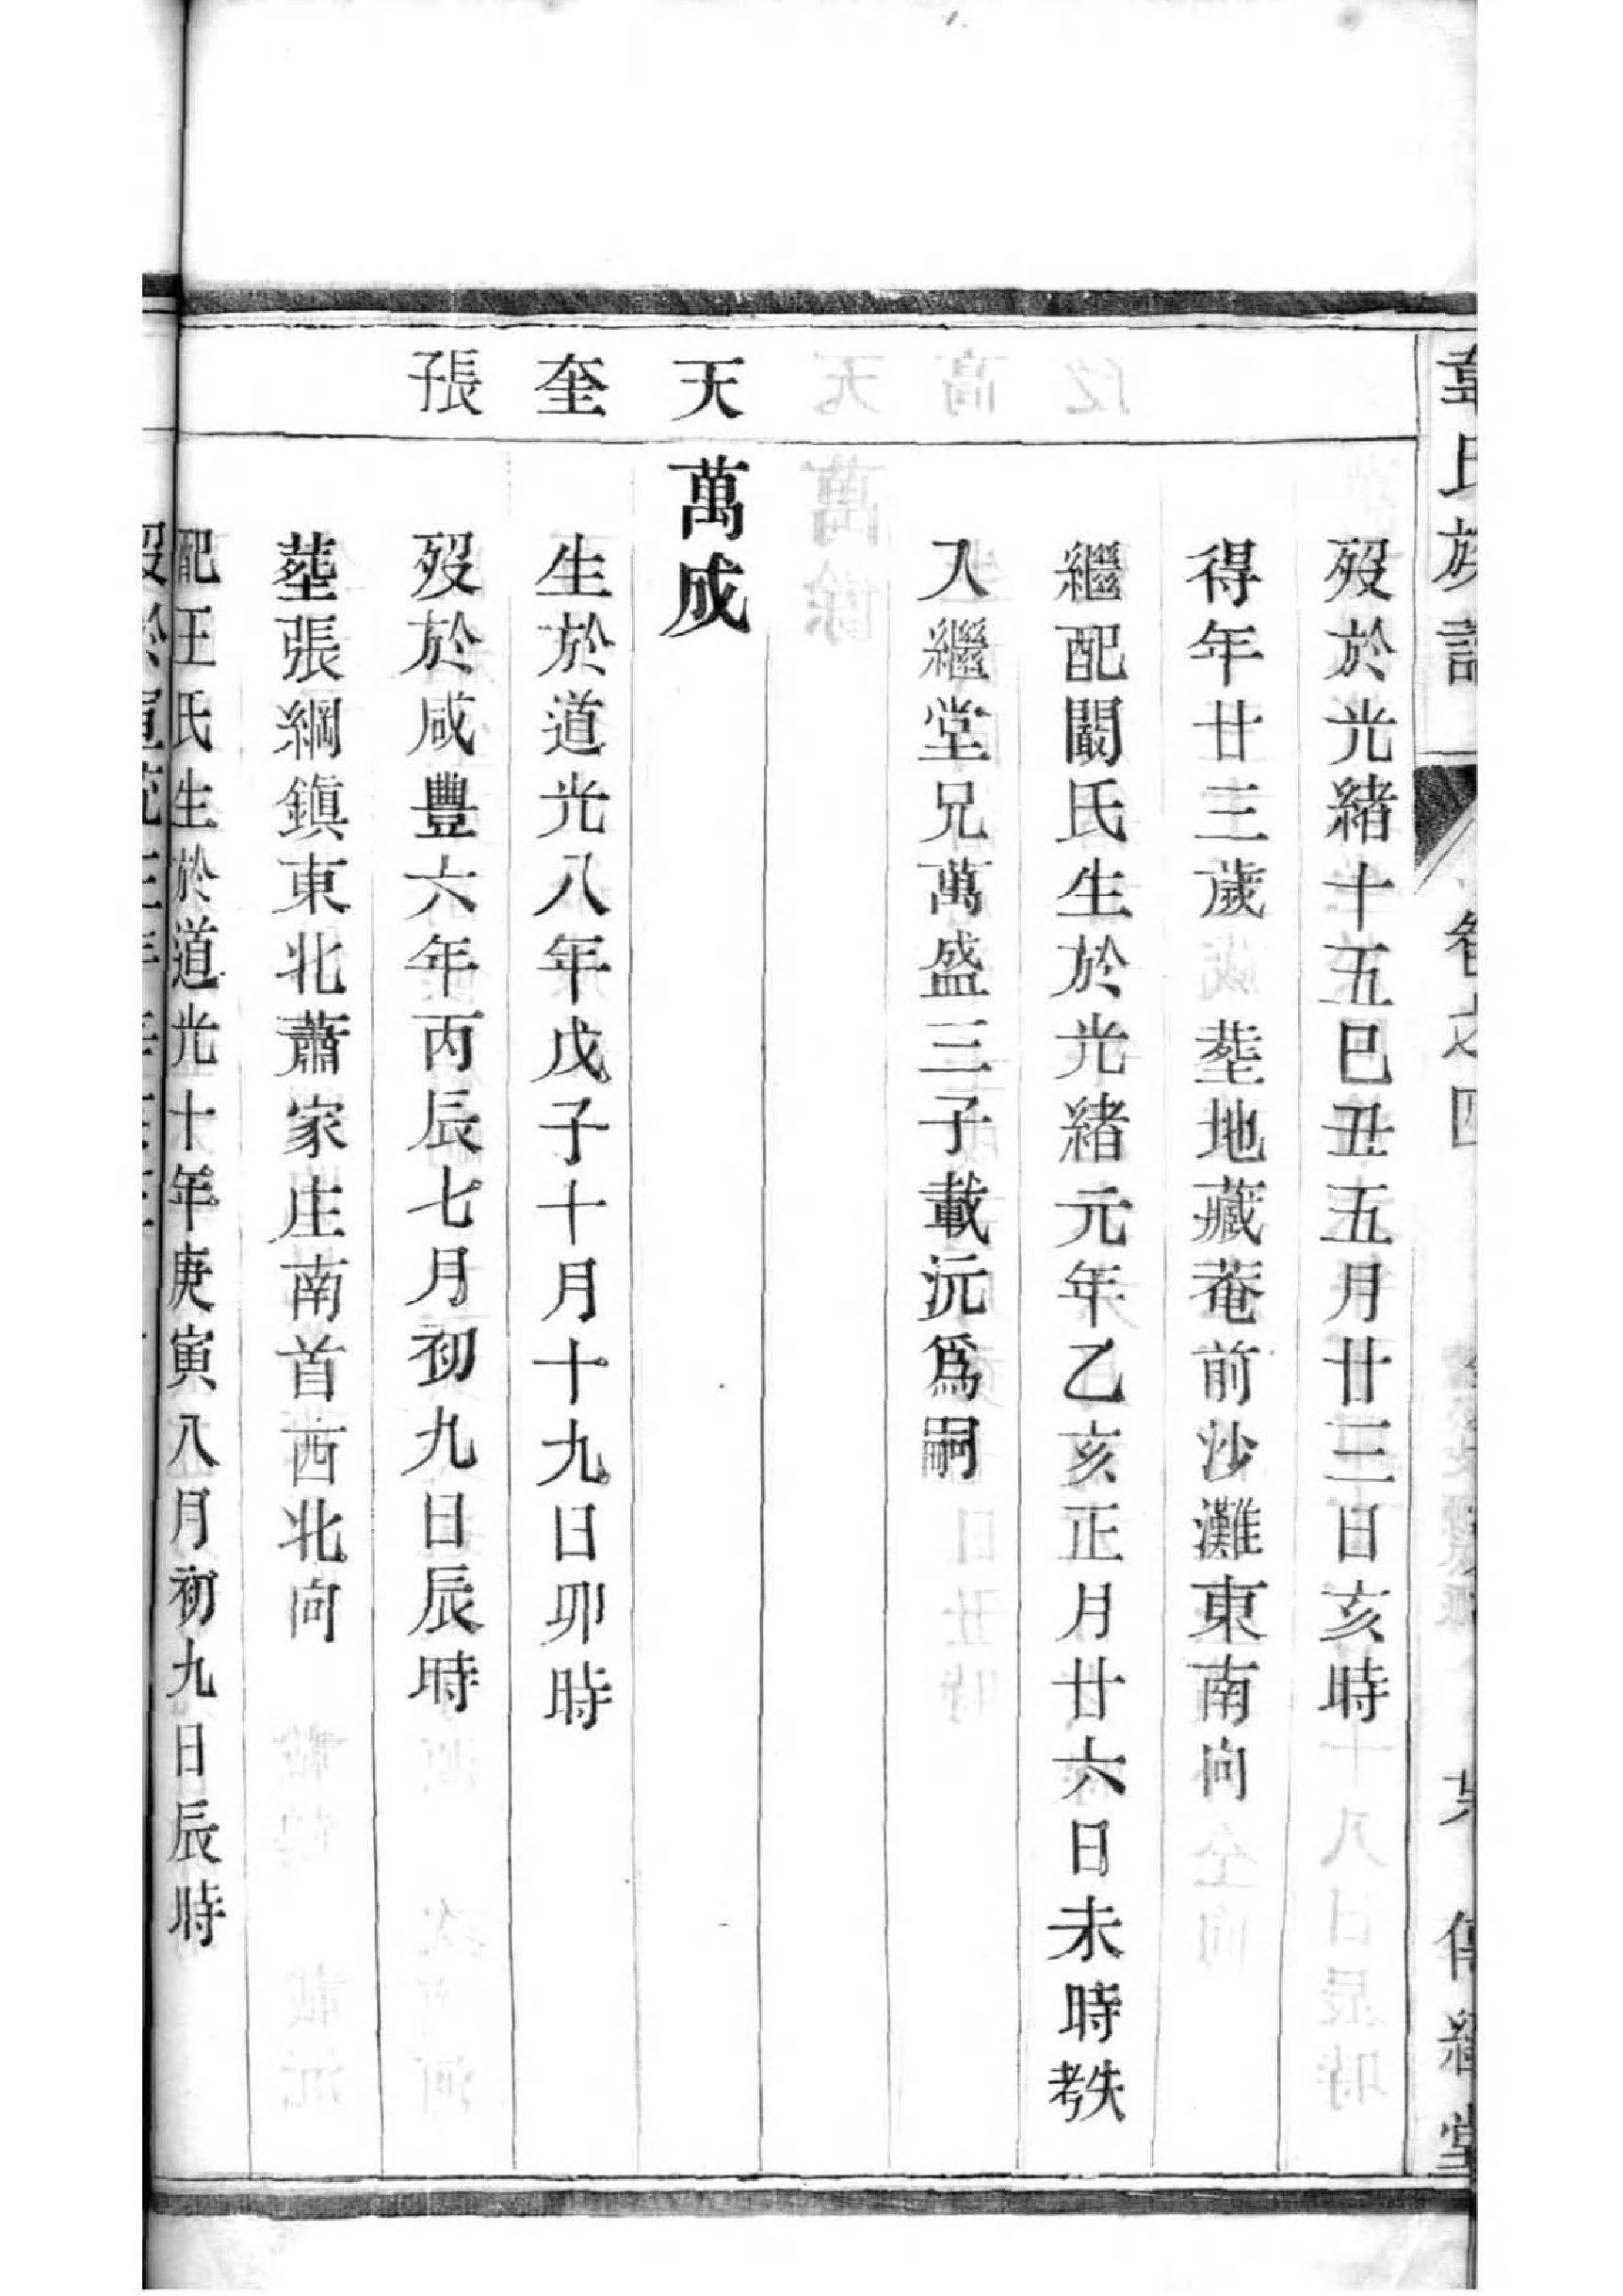 氏族譜
卷之四
傳經堂
歿於光緒十五巳丑五月廿三日亥時
得年廿三歲 塟地藏菴前沙灘東南向
繼配闞氏生於光緒元年乙亥正月廿六日未時考失
入繼堂兄萬盛三子載沅爲嗣
天
萬成
奎
生於道光八年戊子十月十九日卯時
張子
歿於咸豐六年丙辰七月初九日辰時
塟張綱鎭東北蕭家庄南首西北向
配王氏生於道光十年庚寅八月初九日辰時